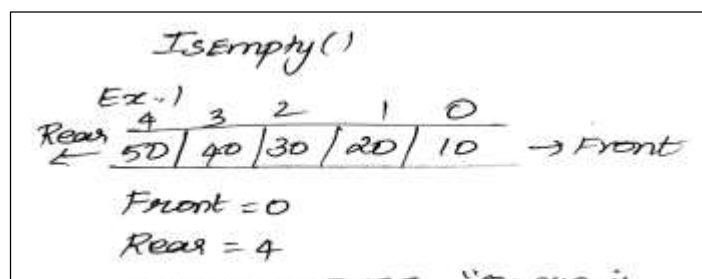 IsEmpty()
Ex.1
4 3 2 1 0
Rear ← 50 | 40 | 30 | 20 | 10 → Front
Front = 0
Rear = 4